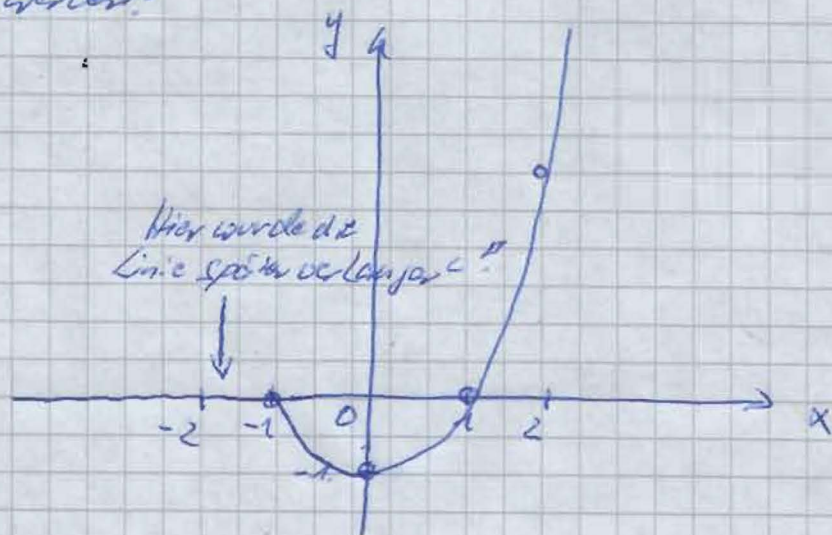 y
Hier wurde die
Linie später verlängert!"
-2 -1 0 1 2 x
-1